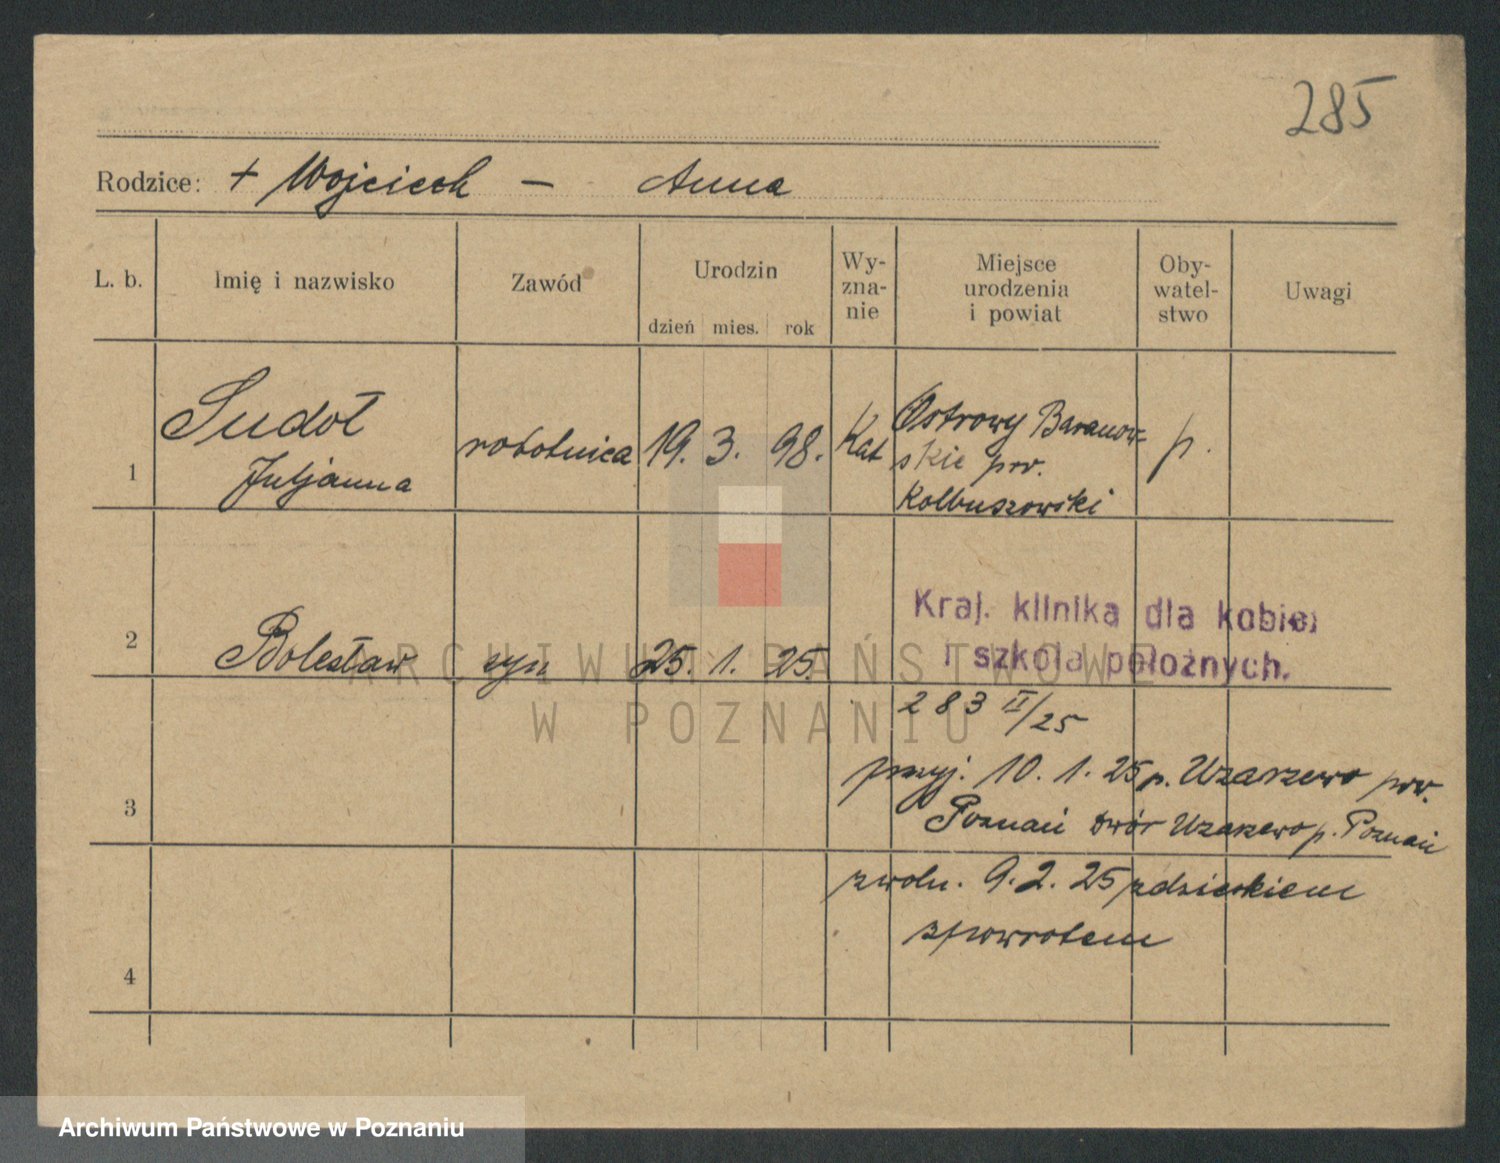 285
Rodzice: + Wojciech — Anna
L. b. Imię i nazwisko Zawód Urodzin dzień mies. rok Wy-zna-nie Miejsce urodzenia i powiat Oby-watel-stwo Uwagi
1 Sudoł Juljanna robotnica 19. 3. 98. Kat Ostrowy Baranow-
skie pow.
Kolbuszowski p.
2 Bolesław syn 25. 1. 25.
Kraj. klinika dla kobiet
i szkoła położnych.
283 II/25
przyj. 10. 1. 25 p. Uzarzewo pow.
3 Poznań dwór Uzarzewo p. Poznań
zwoln. 9. 2. 25 z dzieckiem
zpowrotem
4
ARCHIWUM PAŃSTWOWE
W POZNANIU
Archiwum Państwowe w Poznaniu